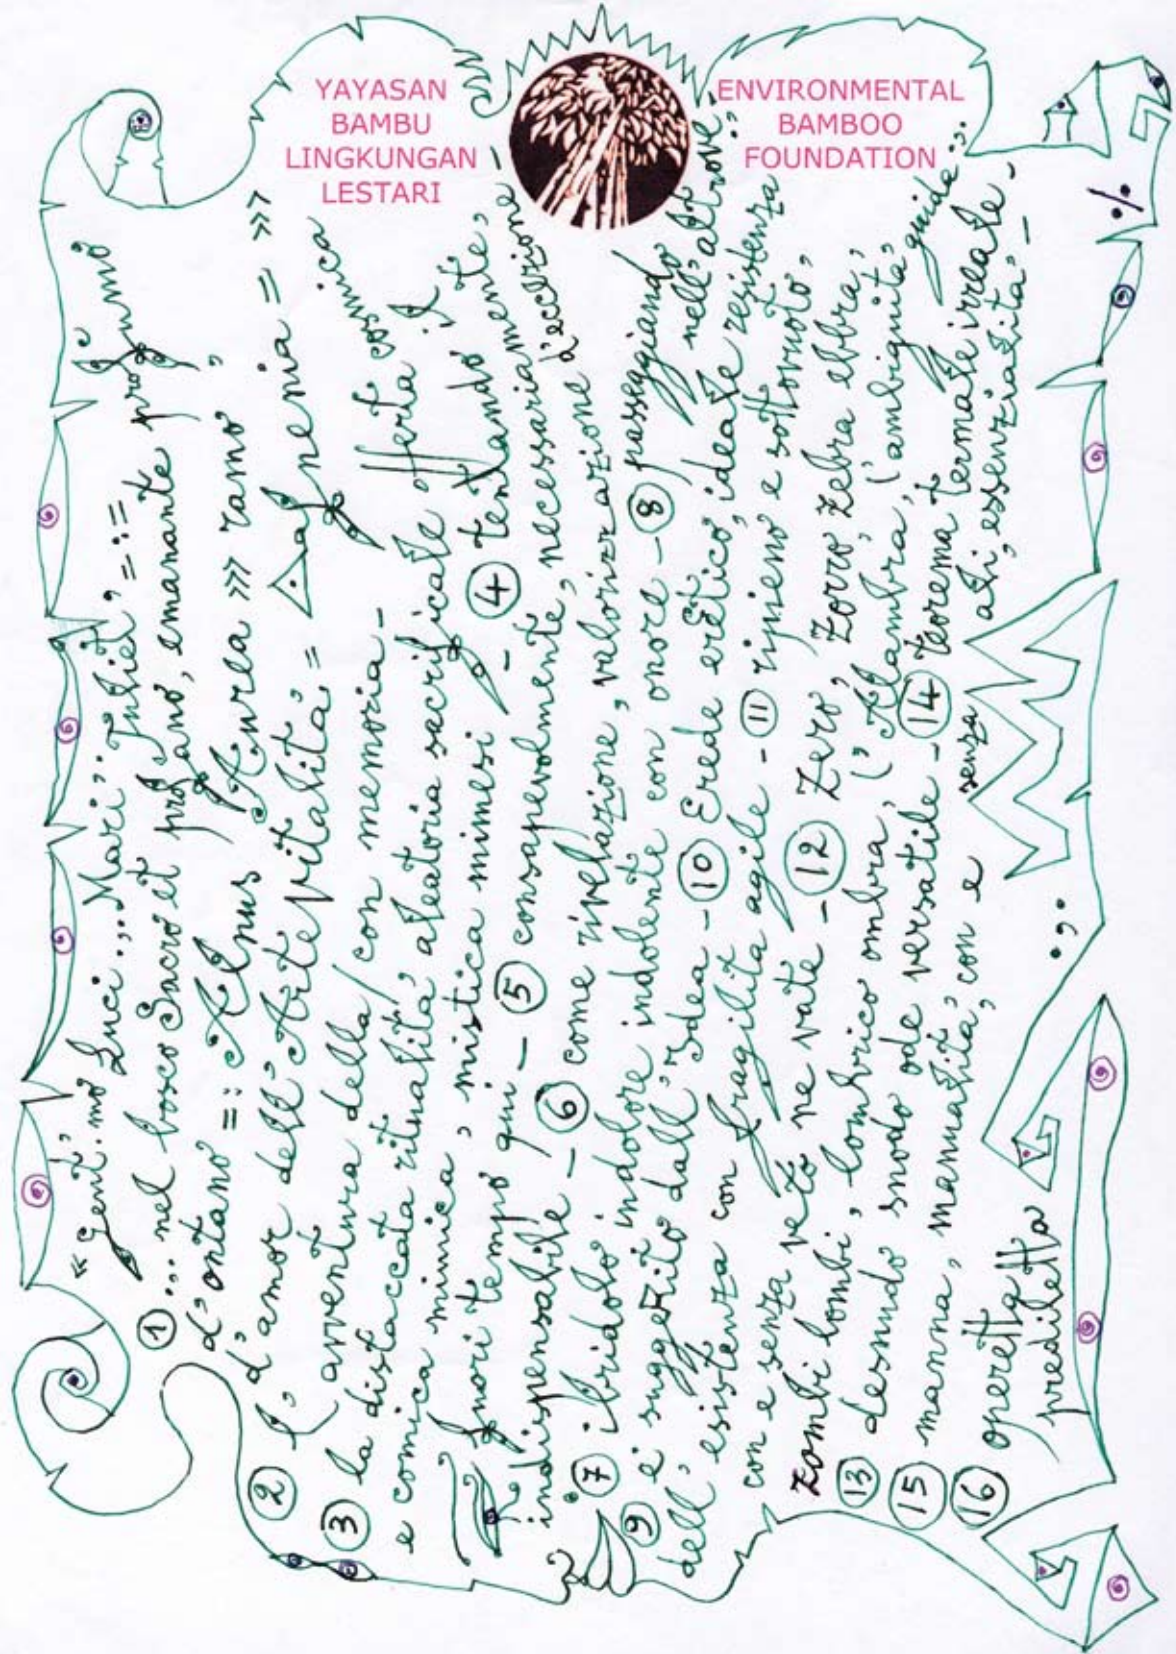 YAYASAN
BAMBU
LINGKUNGAN
LESTARI
ENVIRONMENTAL
BAMBOO
FOUNDATION
« Gent.mo Luci... Mari...
① ... nel bosco Sacro et profano, emanante
d'ontano =: Alnus Aurea >>> ramo
d'amor dell'Arte Vitalità =
② l'avventura della / con memoria -
③ la distaccata ritualità, aleatoria sacrificale offerta il
e comica mimica, mistica mimesi - ④ tentando
fuori tempo qui - ⑤ consapevolmente, necessariamente,
indispensabile - ⑥ come rivelazione, valorizzazione d'eccezione -
⑦ ibridolo indolore indolente con onore - ⑧ passeggiando
⑨ e suggerito dall'Idea - ⑩ Erede eretico, nell'altrove,
dell'esistenza con fragilità agile - ideale resistenza
con e senza veto ne vate - ⑪ ripieno e sottovuoto,
zombi lombi, lombrico ombra, ⑫ Zero, Zorro zebra ebbra,
⑬ desnudo snodo ode versatile - l'Alambra, l'ambiguità,
⑭ teorema termale irreale,
⑮ manna, mannalità, con e senza ali, essenzialità -
⑯ operetta
prediletta